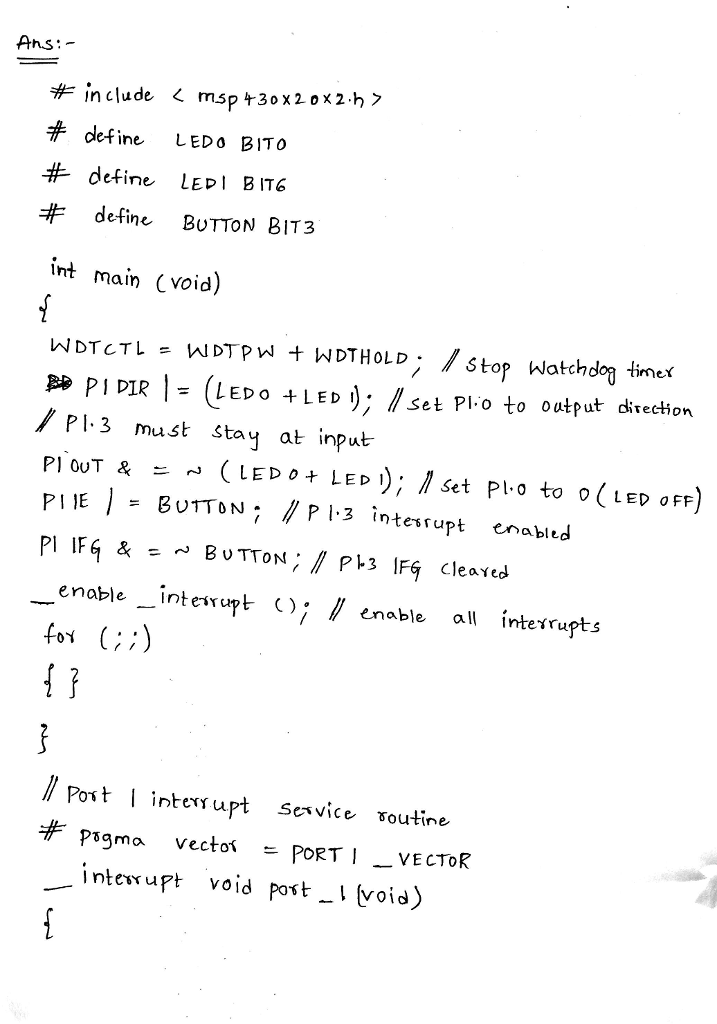 Ans:-
# include < msp430x20x2.h >
# define LED0 BIT0
# define LED1 BIT6
# define BUTTON BIT3
int main (void)
{
WDTCTL = WDTPW + WDTHOLD; // Stop Watchdog timer
P1DIR |= (LED0 + LED1); // set P1.0 to output direction
// P1.3 must stay at input
P1OUT & = ~ (LED0 + LED1); // Set P1.0 to 0 (LED OFF)
P1IE | = BUTTON; // P1.3 interrupt enabled
P1 IFG & = ~ BUTTON; // P1.3 IFG cleared
__enable_interrupt (); // enable all interrupts
for (;;)
{ }
}
// Port 1 interrupt service routine
# progma vector = PORT1_VECTOR
__interrupt void port_1 (void)
{